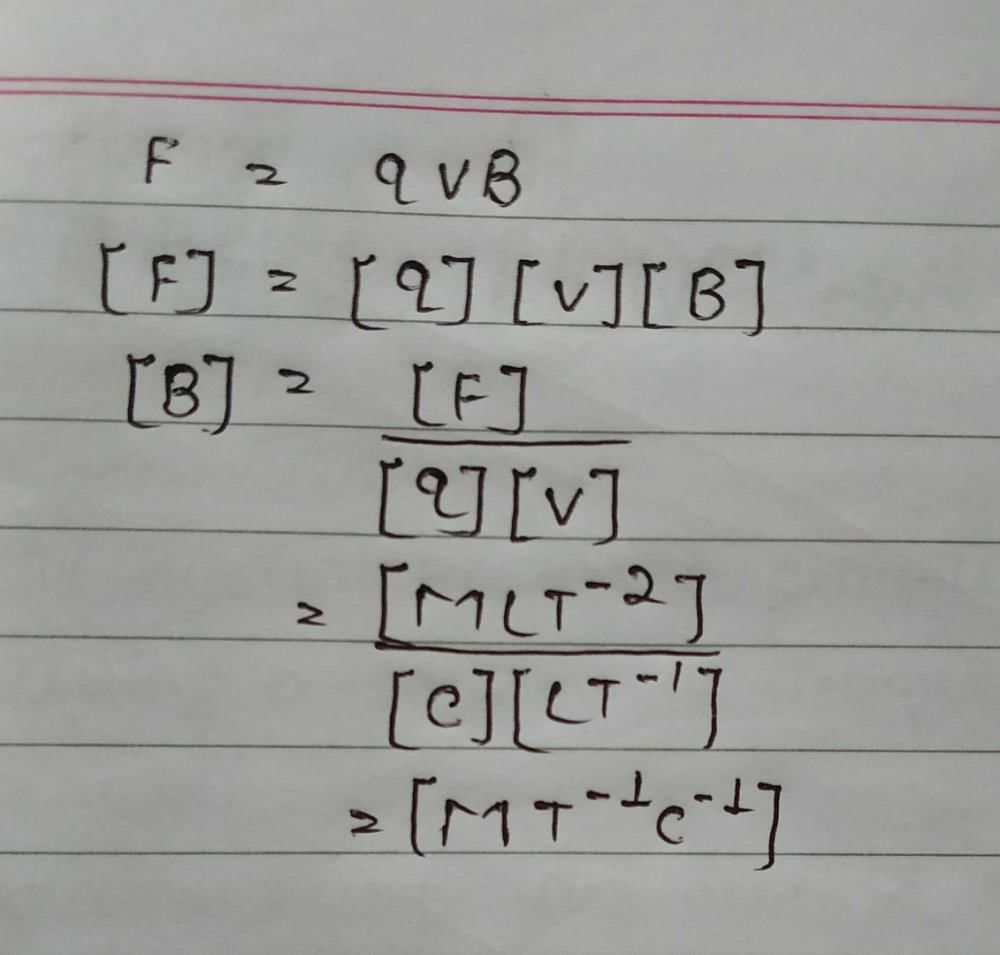 F = qvB
[F] = [q] [v] [B]
[B] = [F]
[q] [v]
= [MLT⁻²]
[C] [LT⁻¹]
= [MT⁻¹C⁻¹]